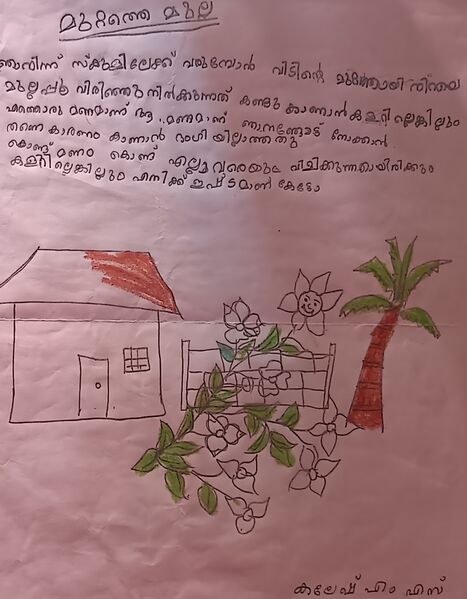 മുറ്റത്തെ മുല്ല
ഞാനിന്ന് സ്കൂളിലേക്ക് വരുമ്പോൾ വീടിന്റെ മുറ്റത്തായി നിറയെ
മുല്ലപ്പൂ വിരിഞ്ഞു നിൽക്കുന്നത് കണ്ടു കാണാൻ കളറില്ലെങ്കിലും
എന്തൊരു മണമാണ് ആ മണമാണ് ഞാനങ്ങോട്ട് നോക്കാൻ
തന്നെ കാരണം കാണാൻ ഭംഗിയില്ലാത്തതു
കൊണ്ട് മണം കൊണ്ട് എല്ലാവരെയും വിളിക്കുന്നതായിരിക്കും
കളറില്ലെങ്കിലും എനിക്ക് ഇഷ്ടമാണ് കേട്ടോ
കലേഷ് എം എസ്